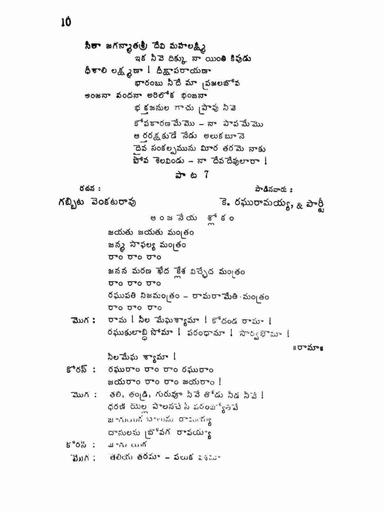 10
సీతా జగన్మాతశ్రీ దేవి మహలక్ష్మి
ఇక నీవె దిక్కు నా యింతి కిపుడు
ధీశాలి లక్ష్మణా ! దీక్షాపరాయణా
భారంబు నీదే మా ప్రజలబోవ
అంజనా వందనా అరిలోక భంజనా
భక్తజనుల గాచు ప్రాపు నీవె
కోపకారణమేమొ - నా పాపమేమొ
ఆర్తరక్షకుడే నేడు అలుకబూనె
దైవ సంకల్పమును మీర తరమె నాకు
పోవ శెలవిండు - నా దేవదేవులారా !
పాట 7
రచన : పాడినవారు :
గబ్బిట వెంకటరావు కె. రఘురామయ్య, & పార్టీ
ఆంజనేయ శ్లోకం
జయతు జయతు మంత్రం
జన్మ సాఫల్య మంత్రం
రాం రాం రాం
జనన మరణ ఖేద క్లేశ విచ్ఛేద మంత్రం
రాం రాం రాం
రఘుపతి నిజమంత్రం - రామరామేతి మంత్రం
రాం రాం రాం
మొగ : రామ ! నీల మేఘశ్యామా ! కోదండ రామా !
రఘుకులాబ్ధి సోమా ! పరంధామా ! సార్వభౌమా !
॥రామా॥
నీలమేఘ శ్యామా !
కోరస్ : రఘురాం రాం రాం రఘురాం
జయరాం రాం రాం జయరాం !
మొగ : తల్లి, తండ్రి, గురువూ నీవే తోడు నీడ నీవే !
ధరణి యెల్ల పాలనచేసే పరంజ్యోతివే
రామయ్యా
దాసులను బ్రోవగ రావయ్యా
కోరస్ :
మొగ : తెలియ తరమా - పలుక వశమా